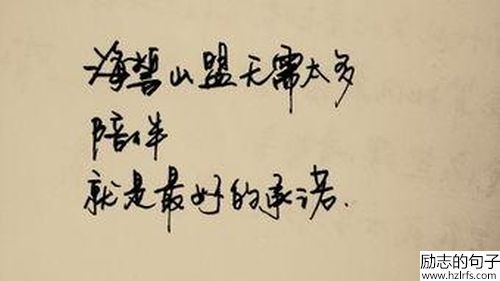 海誓山盟无需太多
陪伴
就是最好的承诺.
励志的句子
www.hzlrfs.com